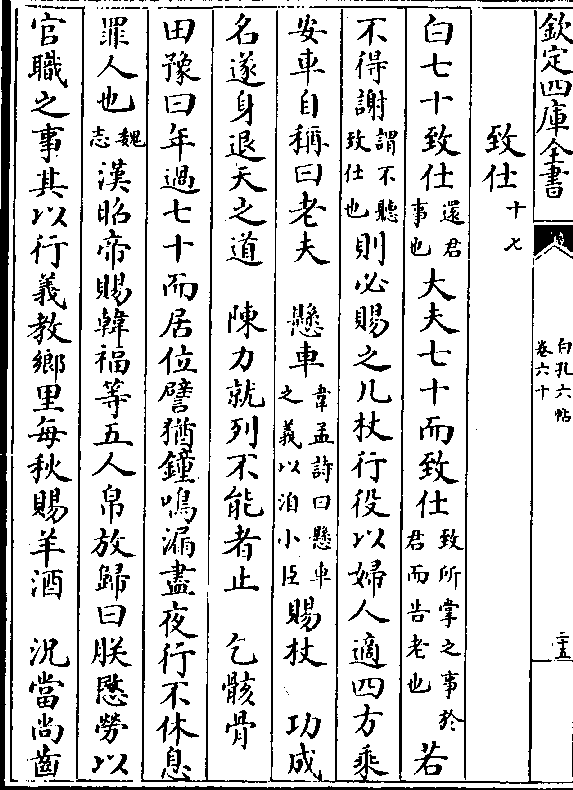 欽定四庫全書
白孔六帖
卷六十
二十五
致仕十七
白七十致仕還君事也大夫七十而致仕致所掌之事於君而告老也若
不得謝謂不聽致仕也則必賜之几杖行役以婦人適四方乘
安車自稱曰老夫 懸車韋孟詩曰懸車之義以洎小臣賜杖 功成
名遂身退天之道 陳力就列不能者止 乞骸骨
田豫曰年過七十而居位譬猶鐘鳴漏盡夜行不休息
罪人也魏志漢昭帝賜韓福等五人帛放歸曰朕愍勞以
官職之事其以行義教鄉里每秋賜羊酒 況當尚齒